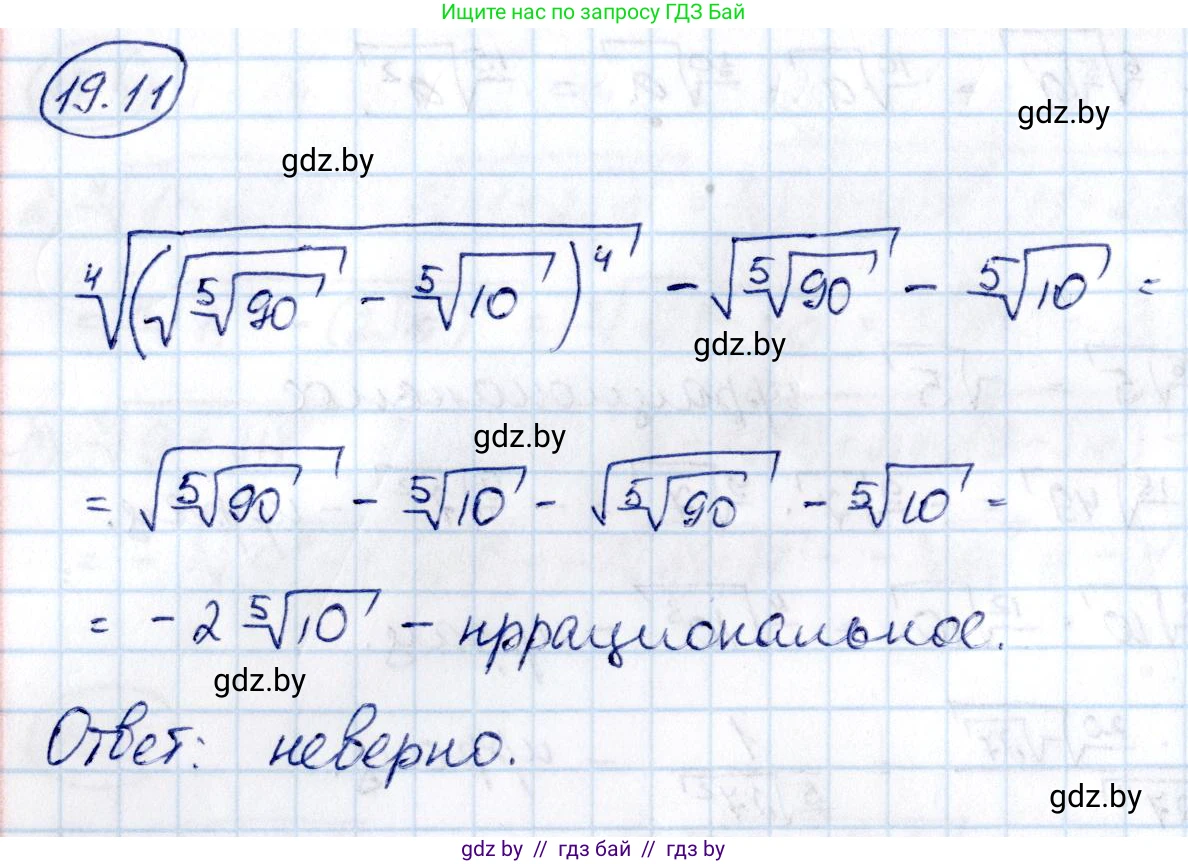 Ищите нас по запросу ГДЗ Бай
19.11
gdz.by
gdz.by
⁴√((√(⁵√90) - ⁵√10)⁴) - √(⁵√90) - ⁵√10 =
gdz.by
gdz.by
= √(⁵√90) - ⁵√10 - √(⁵√90) - ⁵√10 =
= -2 ⁵√10 - иррациональное.
gdz.by
Ответ: неверно.
gdz.by
gdz.by // гдз бай // гдз by